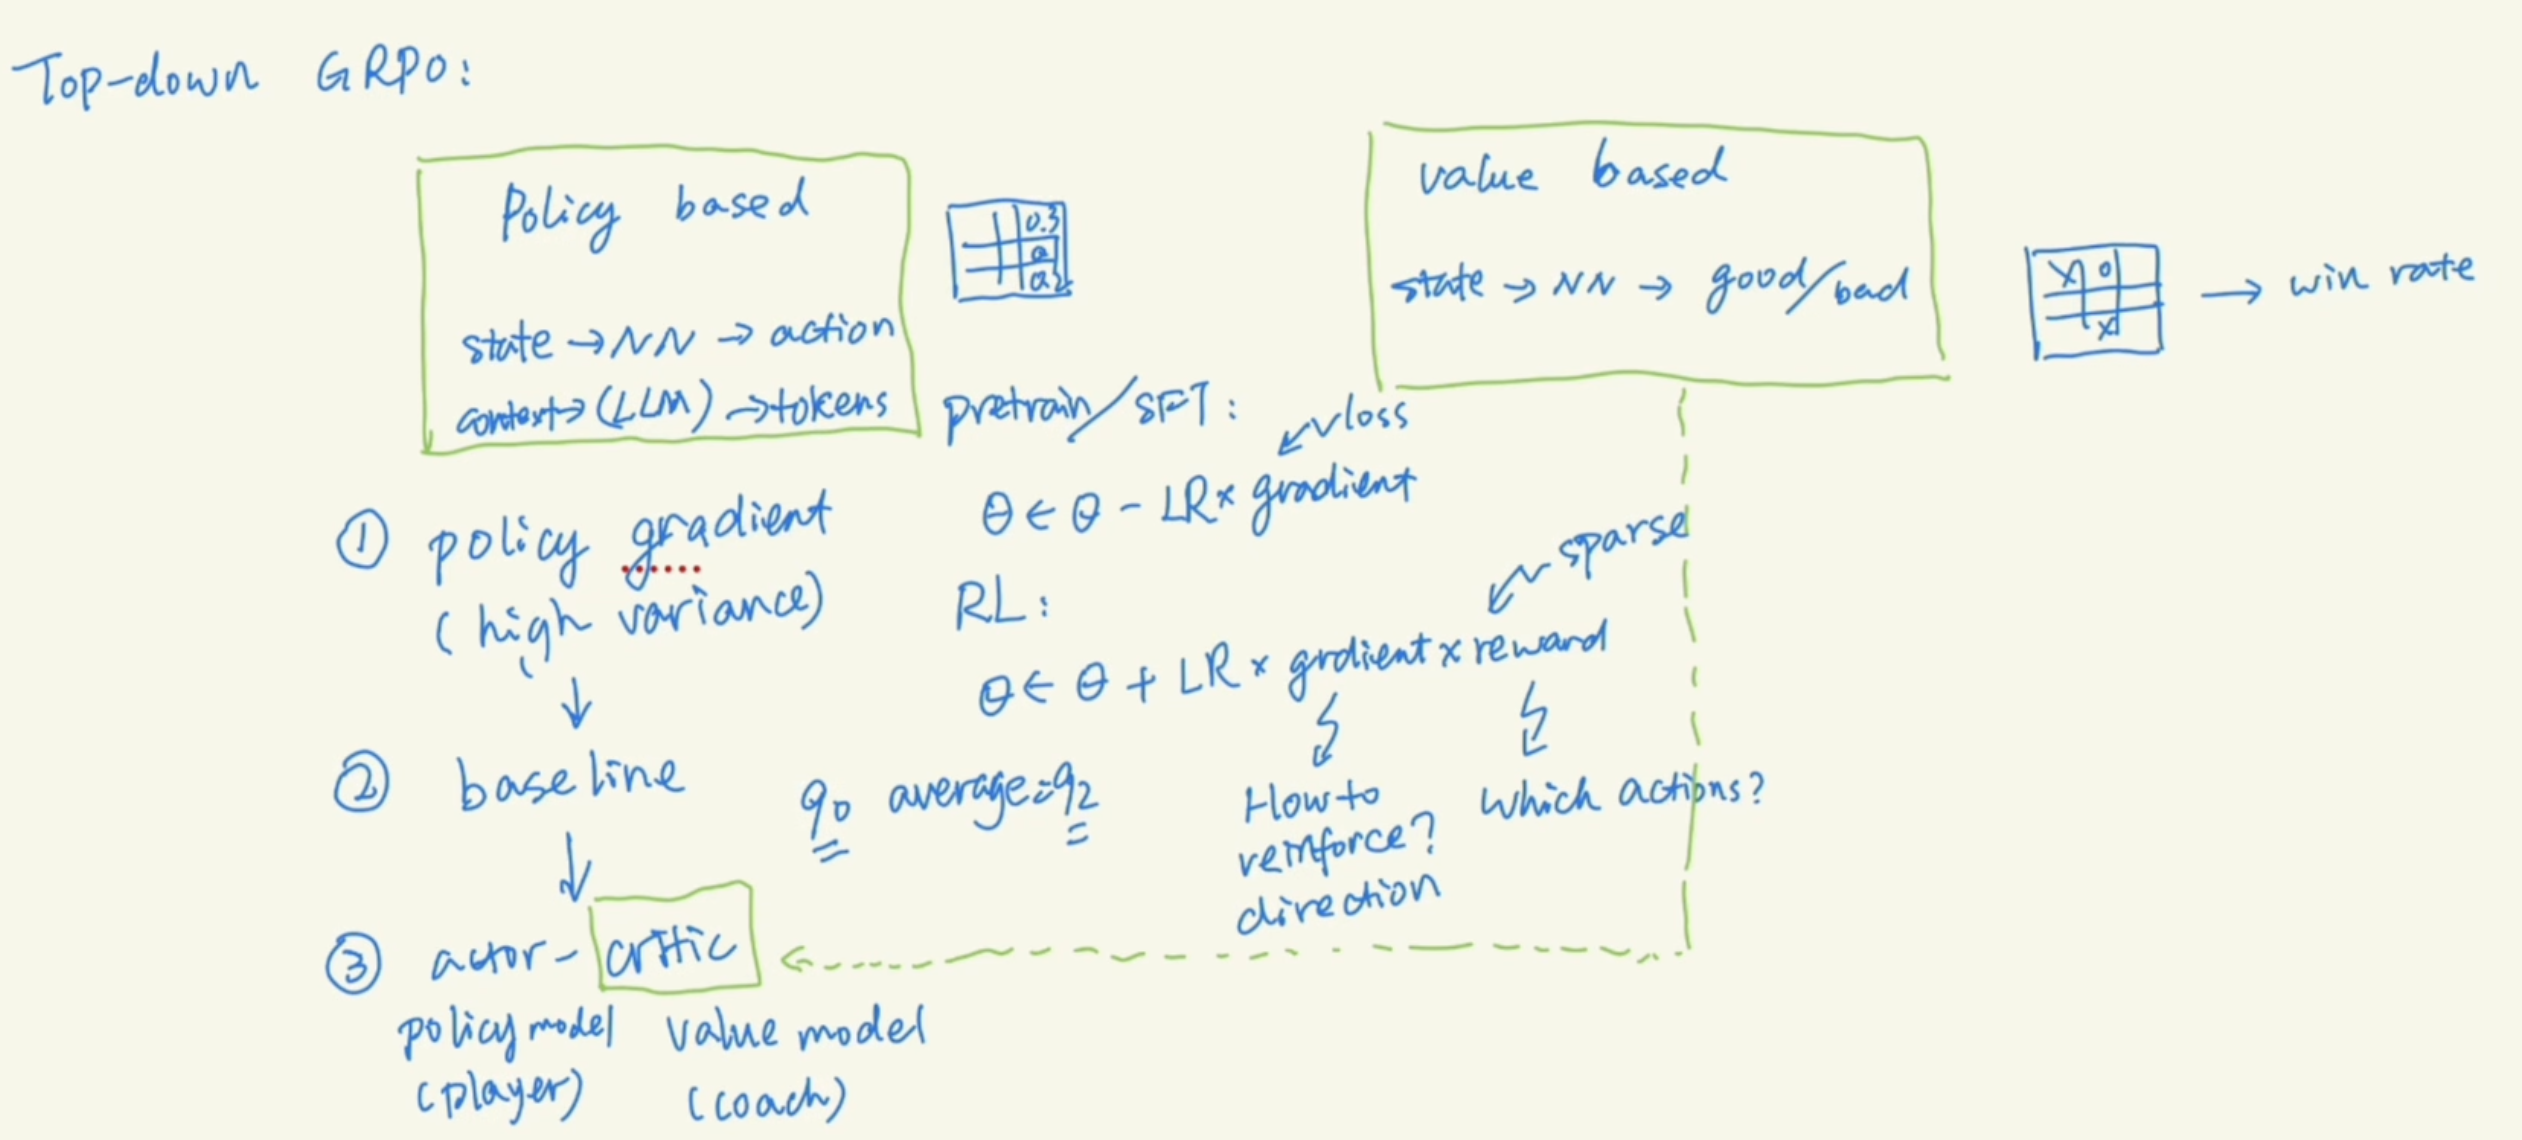 Top-down GRPO:
Policy based
state → NN → action
context → (LLM) → tokens
0.3
value based
state → NN → good/bad
X O
X
→ win rate
pretrain/SFT:
loss
θ ← θ - LR × gradient
① policy gradient
(high variance)
RL:
sparse
θ ← θ + LR × grdient × reward
How to
reinforce?
direction
which actions?
② baseline
90 average=92
③ actor-critic
policy model
(player)
value model
(coach)